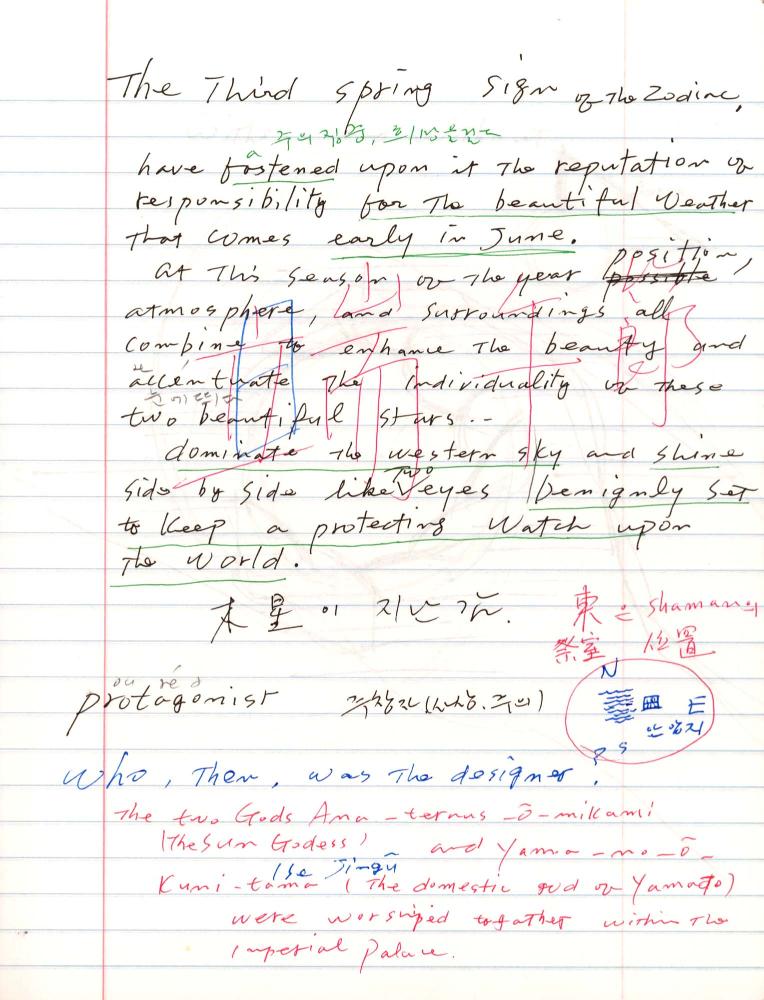 The Third spring sign of The Zodiac.
주의집중, 희망을걸는
a
have fostened upon it The reputation of
responsibility for The beautiful Weather
That comes early in June.
At This season of The year possible position,
atmosphere, and surroundings all
combine to enhance The beauty and
accentuate The individuality of These
눈에띄다
two beautiful stars..
dominate The western sky and shine
side by side like two eyes benignly set
to keep a protecting watch upon
The World.
木星이 지난감.
東은 shaman의
祭室 位置
N
안압지
S
protagonist 주창자(사상.주의)
Who, Then, was The designer.
The two Gods Ama-terus-ō-mikami
(The Sun Godess) and Yama-no-ō-
Ise Jingū
Kuni-tama (The domestic god of Yamato)
were worshiped together within The
Imperial Palace.